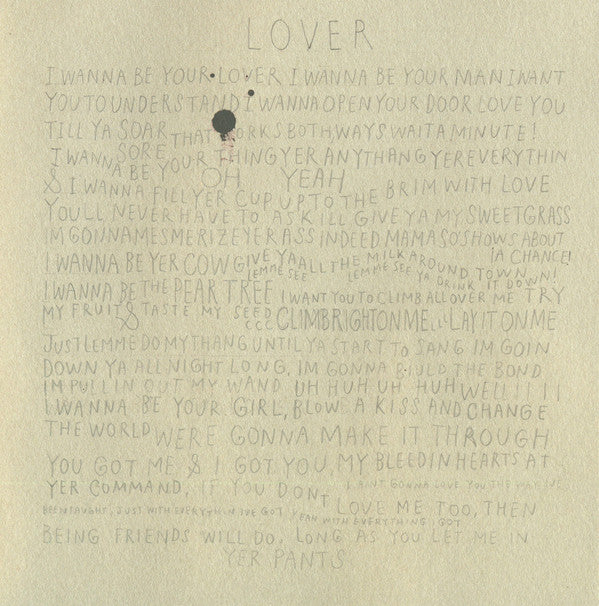 LOVER
I WANNA BE YOUR LOVER I WANNA BE YOUR MAN I WANT
YOU TO UNDERSTAND I WANNA OPEN YOUR DOOR LOVE YOU
TILL YA SOAR THAT WORKS BOTH WAYS WAIT A MINUTE!
SORE
I WANNA BE YOUR THING YER ANYTHANG YER EVERYTHIN
OH YEAH
& I WANNA FILL YER CUP UP TO THE BRIM WITH LOVE
YOULL NEVER HAVE TO ASK ILL GIVE YA MY SWEETGRASS
IM GONNA MESMERIZE YER ASS INDEED MAMA SO'S HOWS ABOUT
A CHANCE!
I WANNA BE YER COW GIVE YA ALL THE MILK AROUND TOWN
LEMME SEE LEMME SEE YA DRINK IT DOWN!
I WANNA BE THE PEAR TREE I WANT YOU TO CLIMB ALL OVER ME TRY
MY FRUIT & TASTE MY SEED
C C C CLIMB RIGHT ON ME LLL LAY IT ON ME
JUST LEMME DO MY THANG UNTIL YA START TO SANG IM GOIN
DOWN YA ALL NIGHT LONG, IM GONNA BIULD THE BOND
IM PULLIN OUT MY WAND UH HUH UH HUH WELL!!!!
I WANNA BE YOUR GIRL, BLOW A KISS AND CHANGE
THE WORLD WERE GONNA MAKE IT THROUGH
YOU GOT ME & I GOT YOU, MY BLEEDIN HEARTS AT
YER COMMAND, IF YOU DONT I AINT GONNA LOVE YOU THE WAY IVE
BEEN TAUGHT, JUST WITH EVERYTHIN IVE GOT YEAH WITH EVERYTHING I GOT
LOVE ME TOO, THEN
BEING FRIENDS WILL DO, LONG AS YOU LET ME IN
YER PANTS